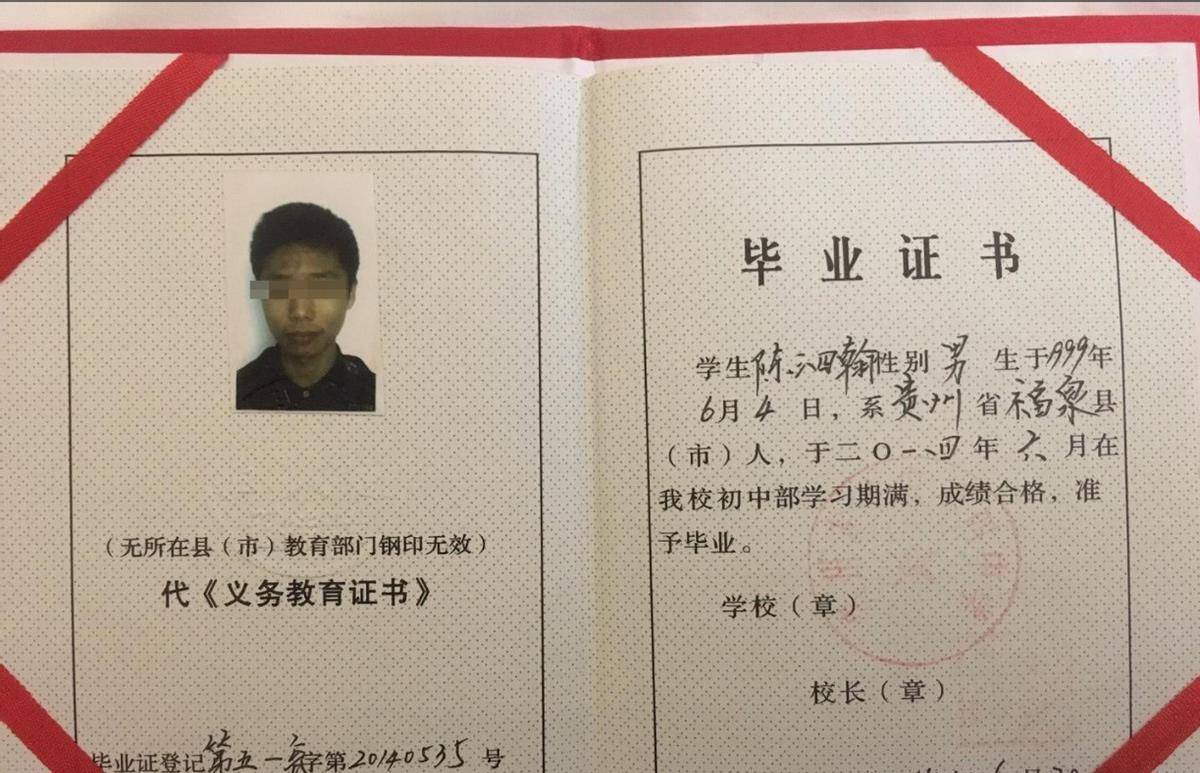 （无所在县（市）教育部门钢印无效）
代《义务教育证书》
毕业证登记第五一 字第20140535 号
毕业证书
学生陈泗翰性别 男 生于1999年
6月 4 日，系贵州 省福泉县
（市）人，于二〇一四年 六 月在
我校初中部学习期满，成绩合格，准
予毕业。
学校（章）
校长（章）